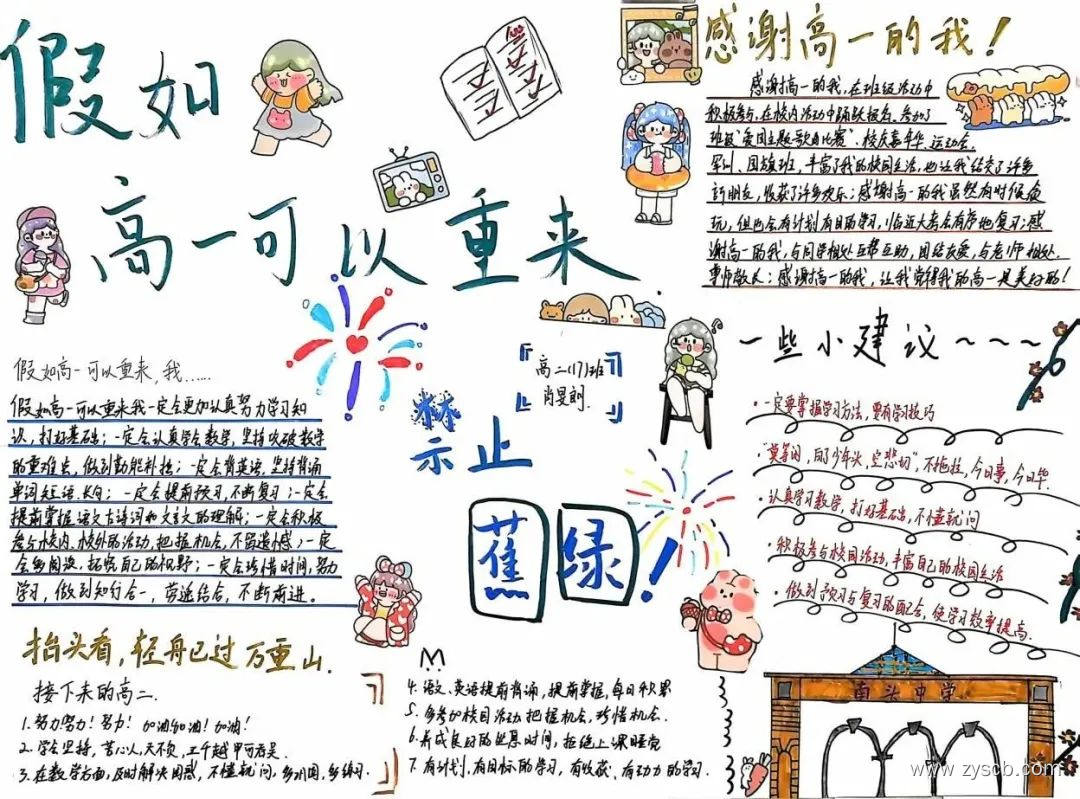 假如
高一可以重来
感谢高一的我！
感谢高一的我，在班级活动中
积极参与，在校内活动中踊跃报名，参加了
班级"爱国主题歌曲比赛"、校庆嘉年华、运动会、
军训、国旗班，丰富了我的校园生活，也让我结交了许多
新朋友，收获了许多欢乐；感谢高一的我虽然有时候贪
玩，但也会有计划有目的学习，临近大考会有序地复习；感
谢高一的我，与同学相处互帮互助，团结友爱，与老师相处，
尊师敬长；感谢高一的我，让我觉得我的高一是美好的！
假如高一可以重来，我……
假如高一可以重来我一定会更加认真努力学习知
识，打好基础；一定会认真学会数学，坚持攻破数学
的重难点，做到勤能补拙；一定会背英语，坚持背诵
单词短语、长句；一定会提前预习，不断复习；一定会
提前掌握语文古诗词和文言文的理解；一定会积极
参与校内、校外的活动，把握机会，不留遗憾；一定
会多阅读，拓宽自己的视野；一定会珍惜时间，努力
学习，做到知行合一，劳逸结合，不断前进。
高二(17)班
肖旻朗
禁止
蕉绿！
一些小建议～～～
·一定要掌握学习方法，要有学习技巧
·"莫等闲，白了少年头，空悲切"，不拖拉，今日事，今日毕.
·认真学习数学，打好基础，不懂就问
·积极参与校园活动，丰富自己的校园生活
·做到预习与复习的配合，使学习效率提高.
抬头看，轻舟已过万重山.
接下来的高二.
1.努力努力！努力！加油加油！加油！
2.学会坚持，苦心人，天不负，三千越甲可吞吴.
3.在数学方面，及时解决困惑，不懂就问，多巩固，多练习.
4.语文、英语提前背诵，提前掌握，每日积累
5.多参加校园活动，把握机会，珍惜机会.
6.养成良好的作息时间，拒绝上课睡觉
7.有计划，有目标的学习，有收获，有动力的学习.
南头中学
www.zyscb.com